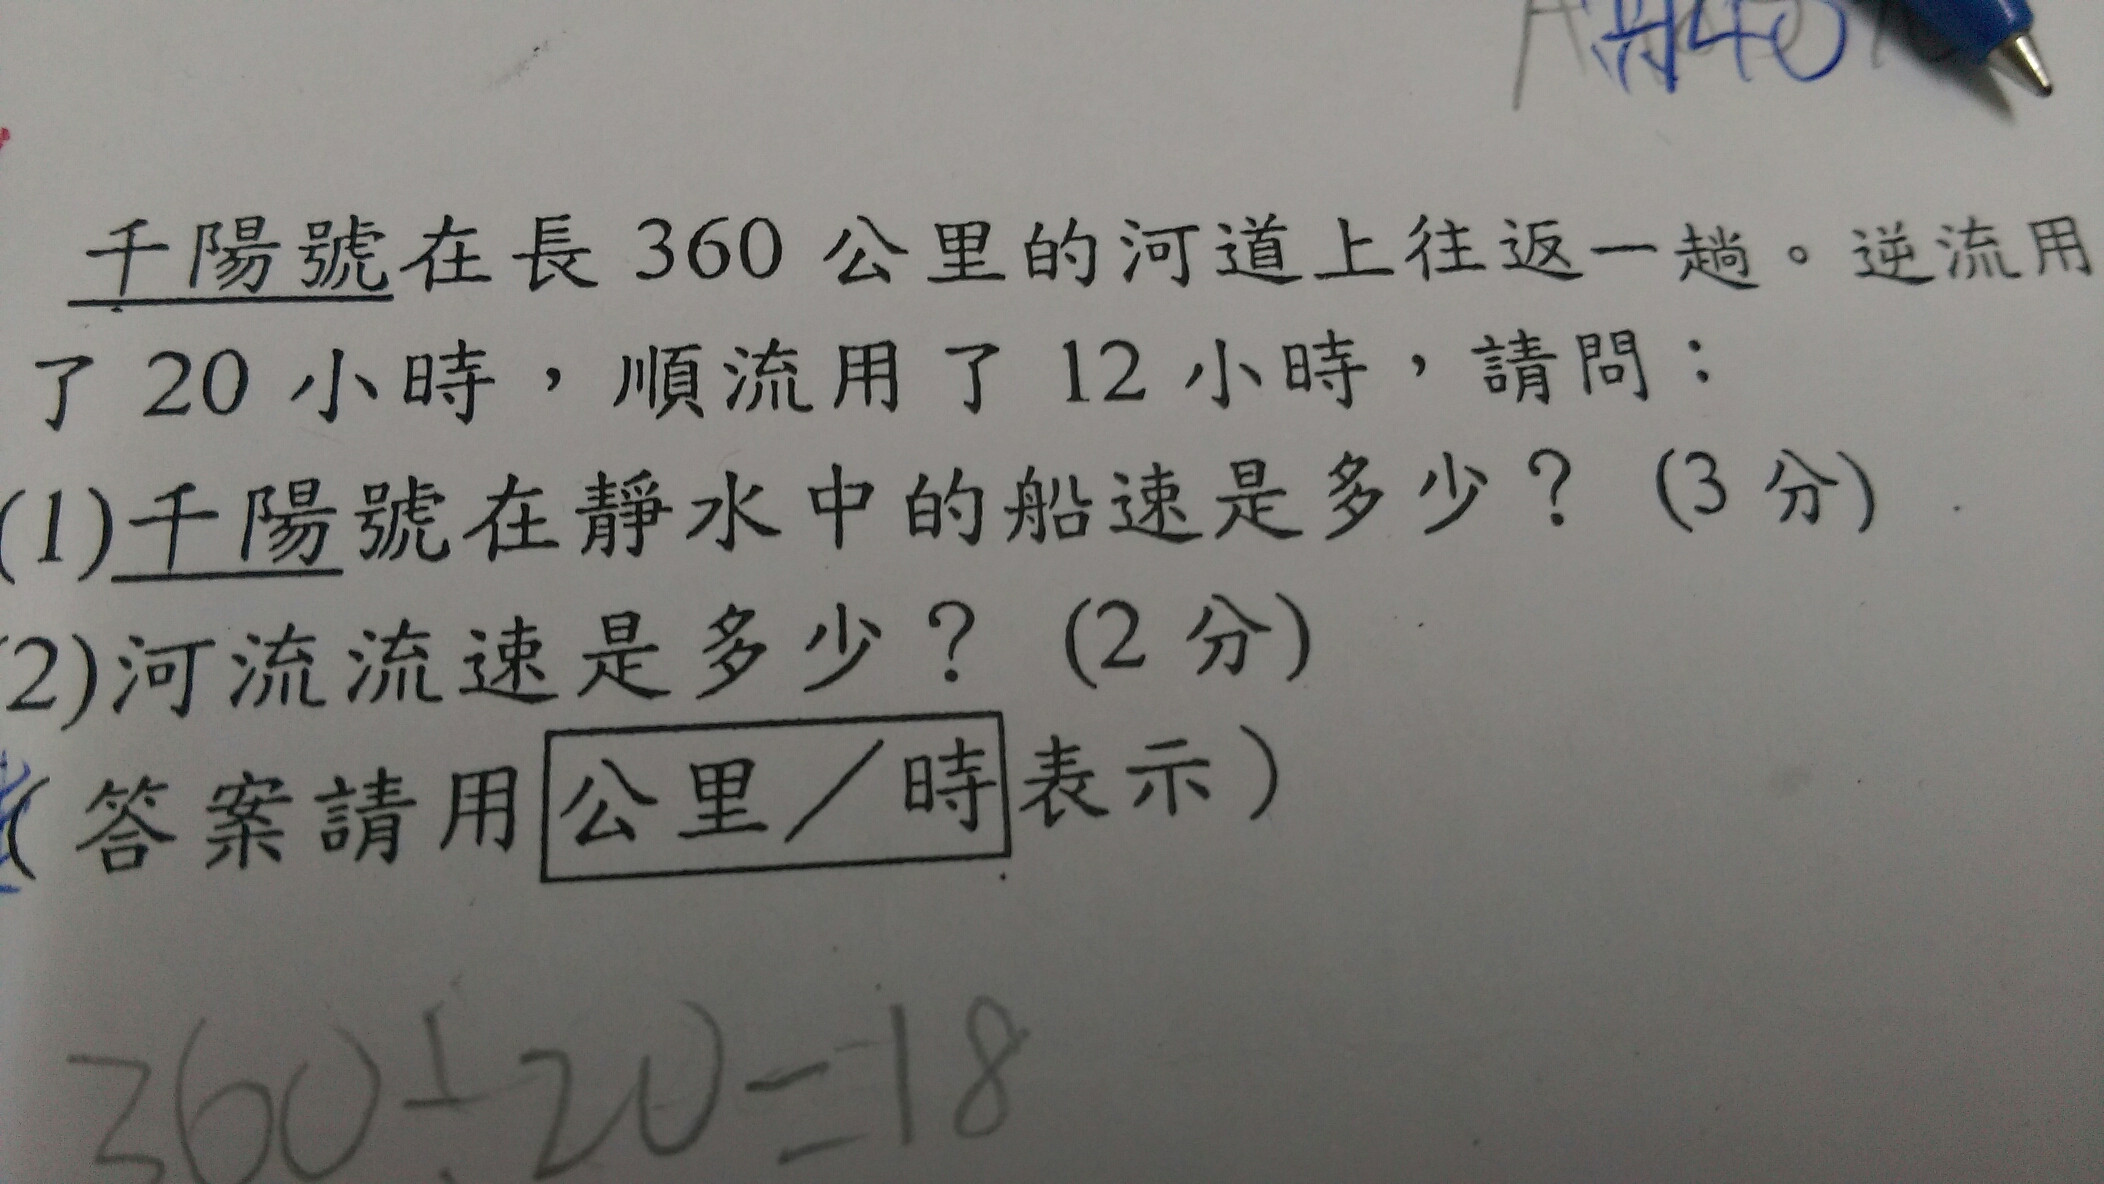 千陽號在長 360 公里的河道上往返一趟。逆流用
了 20 小時，順流用了 12 小時，請問：
(1)千陽號在靜水中的船速是多少？(3 分)
2)河流流速是多少？(2 分)
(答案請用公里／時表示)
360÷20=18